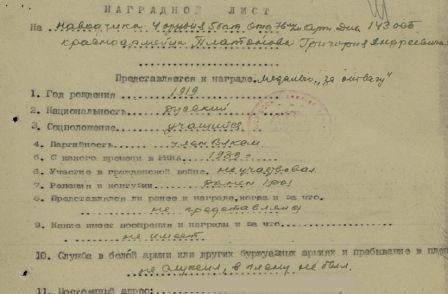 НАГРАДНОЙ ЛИСТ
На наводчика 4 орудия 5 бат. 76 арт. Див. 143 
красноармейца Платонова Григория Андреевича
Представляется к награде медалью „за отвагу"
1. Год рождения 1919
2. Национальность русский
3. Соцположение учащийся
4. Партийность член ВЛКСМ
5. С какого времени в РККА 1939 г
6. Участие в гражданской войне не участвовал
7. Ранения и контузии ранен
8. Представлялся ли ранее к награде, когда и за что
не представлялся
9. Какие имеет поощрения и награды и за что
не имеет
10. Служба в белой армии или других буржуазных армиях и пребывание в плену
не служил, в плену не был.
11. Постоянный адрес: